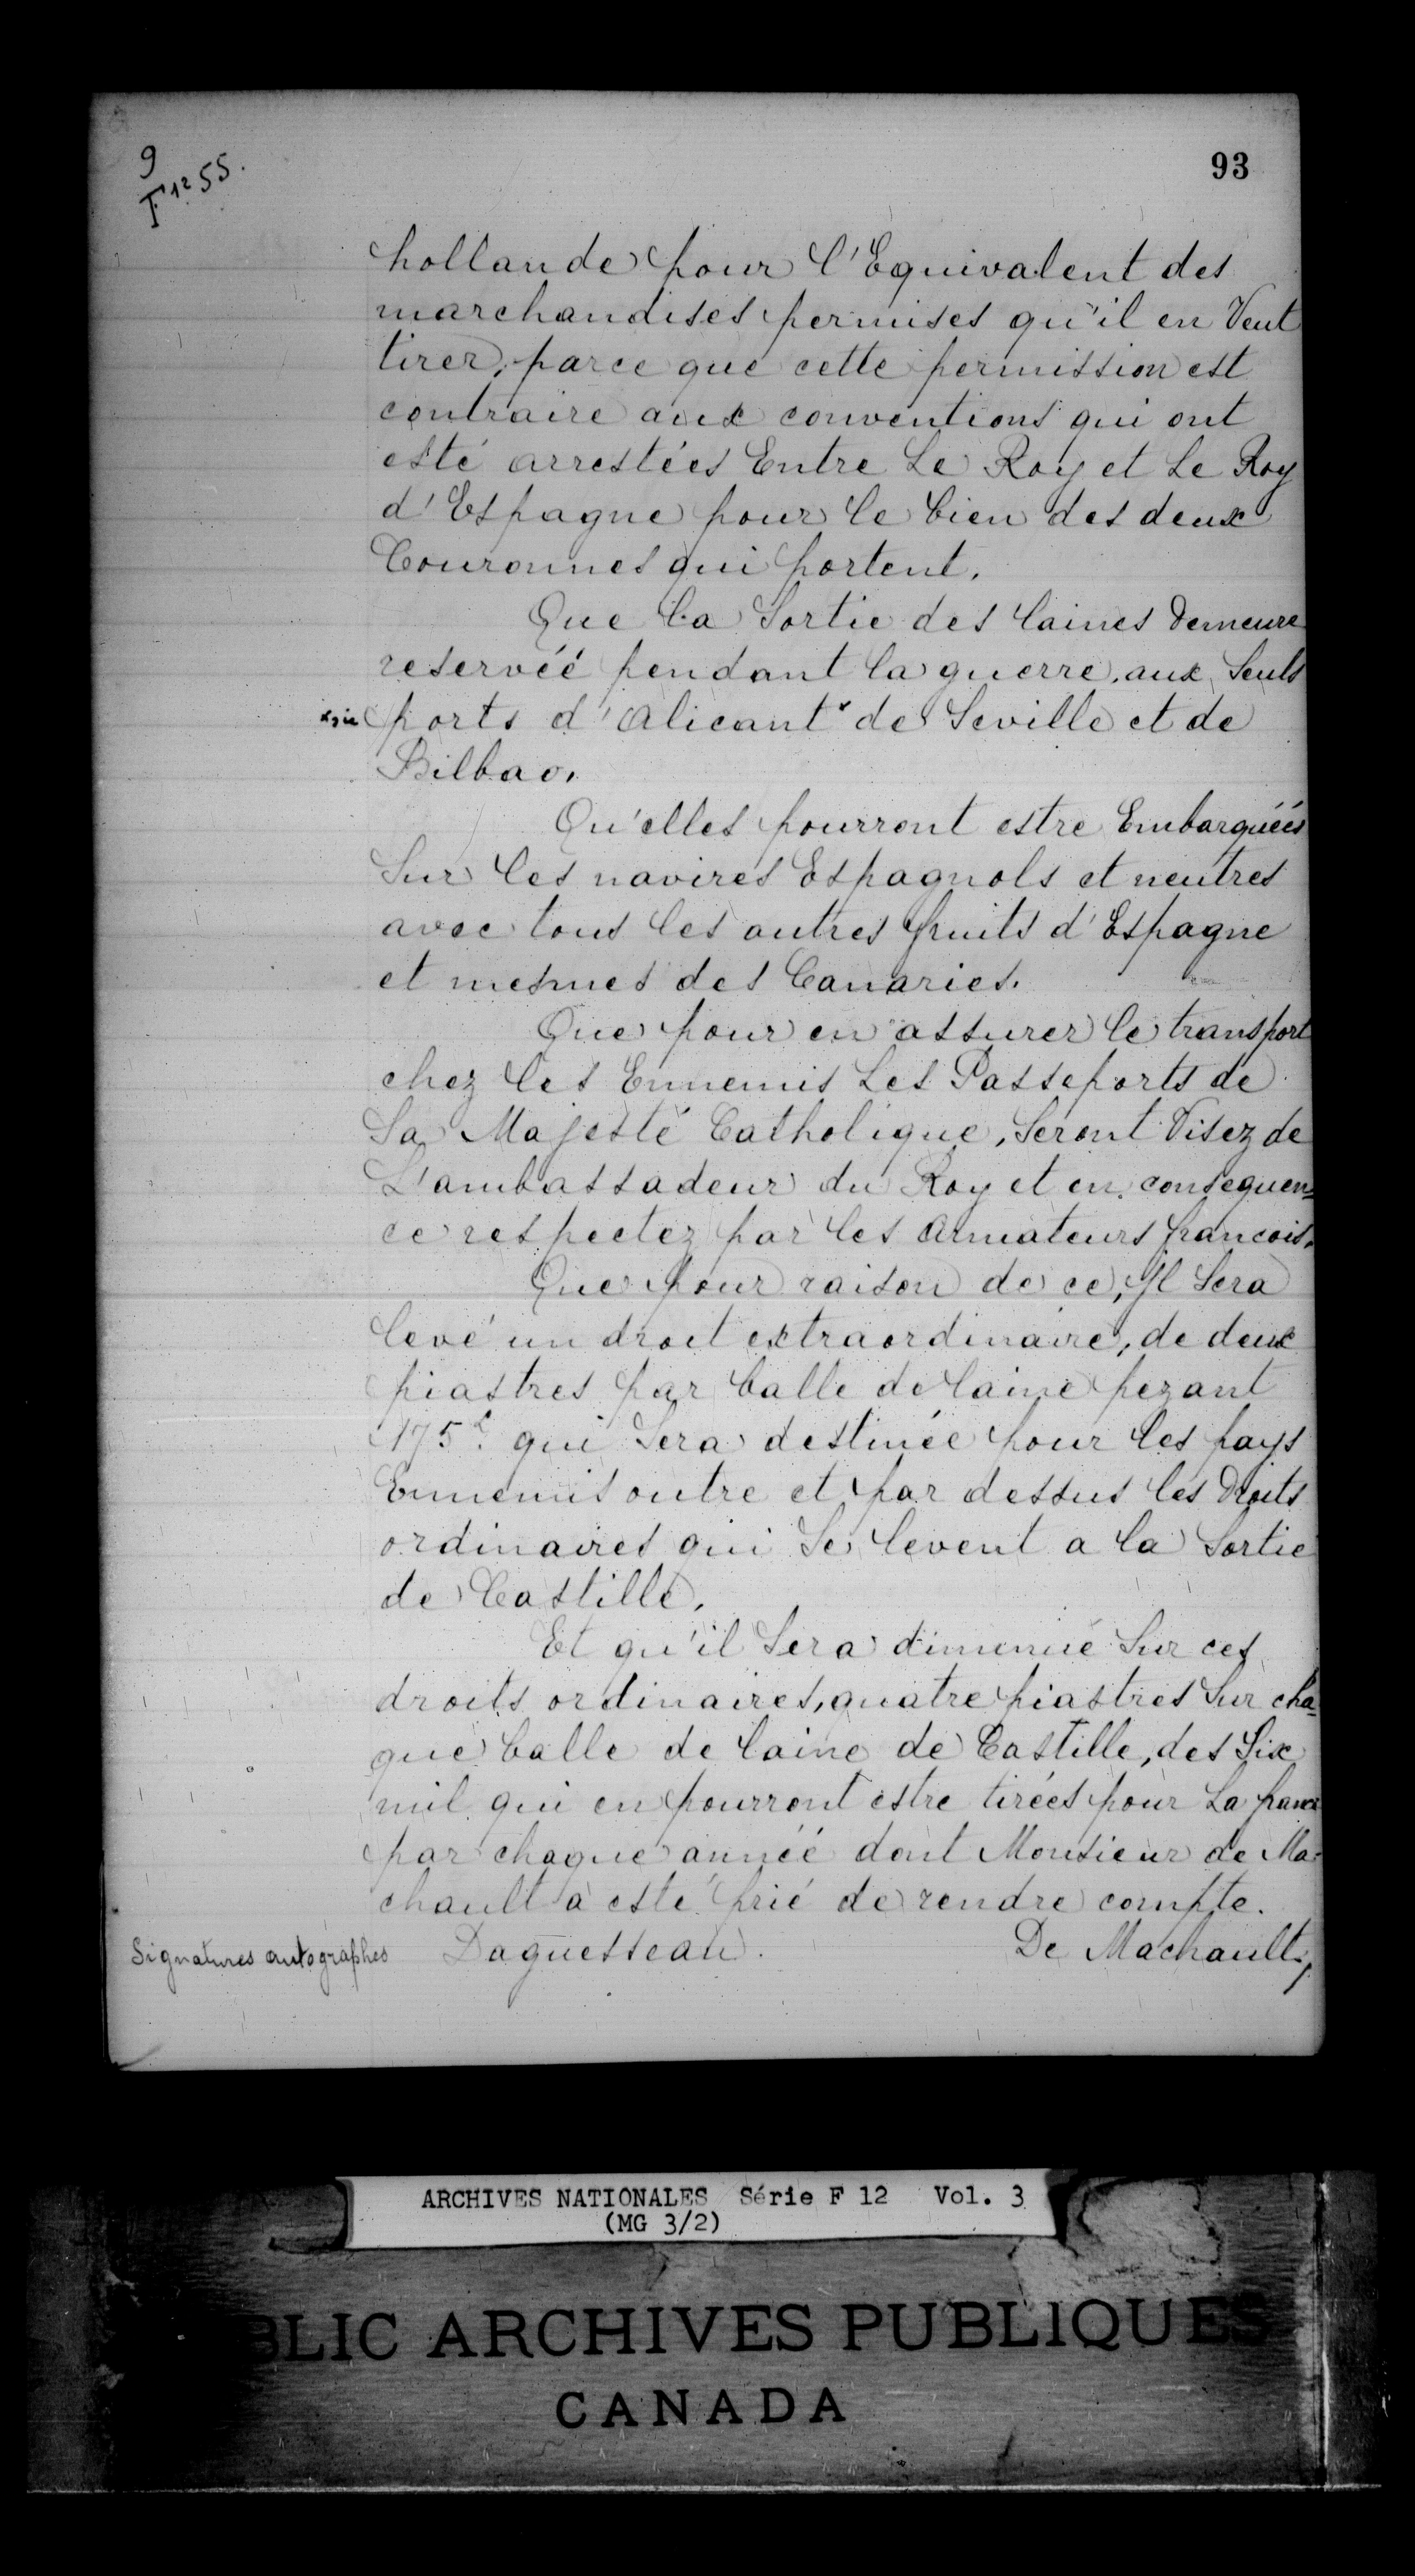 9
F12 55.
93
hollande pour l'Equivalent des
marchandises permises qu'il en Veut
tirer, parce que cette permission est
contraire aux conventions qui ont
esté arrestées Entre Le Roy et Le Roy
d'Espagne pour le bien des deux
Couronnes qui portent.
Que la Sortie des laines Demeure
reservéé pendant la guerre, aux Seuls
x sic ports d'Alicant x de Seville et de
Bilbao.
Qu'elles pourront estre Embarquéés
Sur les navires Espagnols et neutres
avec tous les autres fruits d'Espagne
et mesmes des Canaries.
Que pour en assurer le transport
chez les Ennemis Les Passeports de
Sa Majesté Catholique, Seront Visez de
L'ambassadeur du Roy et en consequen=
ce respectez par les Armateurs francois.
Que pour raison de ce, Il Sera
levé un droit extraordinaire, de deux
piastres par balle de laine pezant
175 l. qui Sera destinée pour les pays
Ennemis outre et par dessus les Droits
ordinaires qui Se levent a la Sortie
de Castille.
Et qu'il Sera diminué Sur ces
droits ordinaires, quatre piastres Sur cha=
que balle de laine de Castille, des Six
mil qui en pourront estre tirées pour La france
par chaque annéé dont Monsieur de Ma=
chault a esté prié de rendre compte.
Signatures autographes Daguesseau. De Machault,
ARCHIVES NATIONALES Série F 12 Vol. 3
(MG 3/2)
BLIC ARCHIVES PUBLIQUES
CANADA